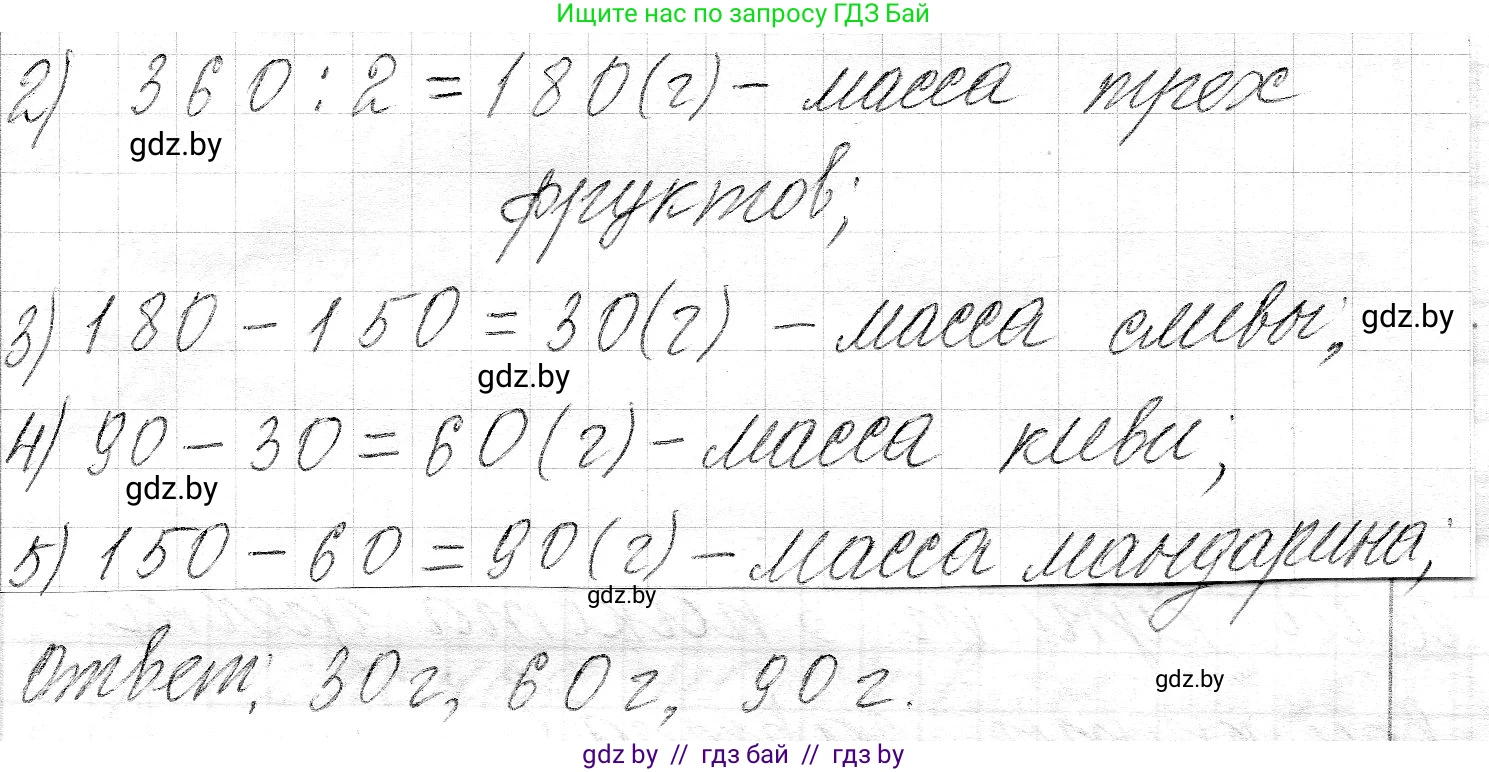 Ищите нас по запросу ГДЗ Бай
2) 360 : 2 = 180 (г) - масса трех
gdz.by
фруктов;
3) 180 - 150 = 30 (г) - масса сливы; gdz.by
gdz.by
4) 90 - 30 = 60 (г) - масса киви;
gdz.by
5) 150 - 60 = 90 (г) - масса мандарина;
gdz.by
Ответ: 30 г, 60 г, 90 г.
gdz.by
gdz by // гдз бай // гдз by